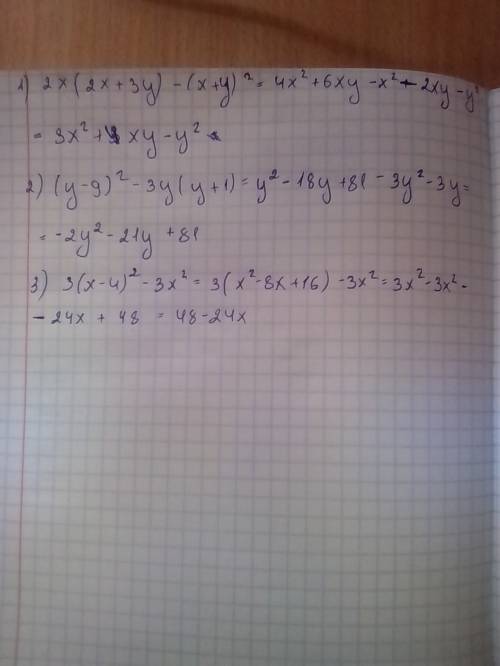 1) 2x(2x+3y) -(x+y)² = 4x² +6xy -x² - 2xy -y²
= 3x² + 4xy - y²
2) (y-9)² - 3y(y+1) = y² - 18y + 81 - 3y² - 3y =
= -2y² - 21y + 81
3) 3(x-4)² - 3x² = 3(x² - 8x + 16) - 3x² = 3x² - 3x² -
- 24x + 48 = 48 - 24x